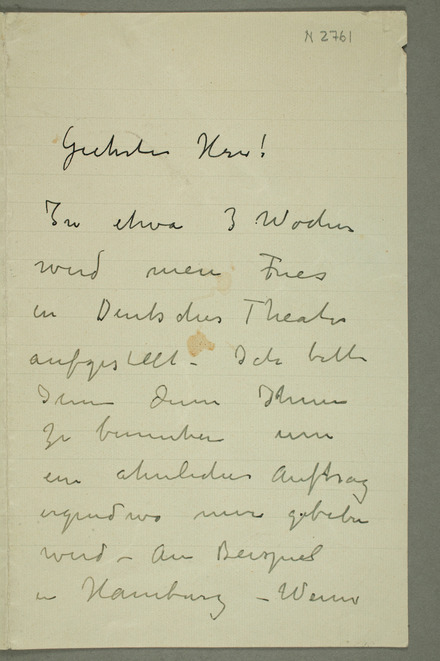 N 2761
Geehrter Herr!
In etwa 3 Wochen
wird mein Fries
in Deutsches Theater
aufgestellt – Ich bitte
Ihnen
zu bemerken
ein ähnlicher Auftrag
irgendwo mir gebeten
wird – Am Beispiel
in Hamburg – Wenn